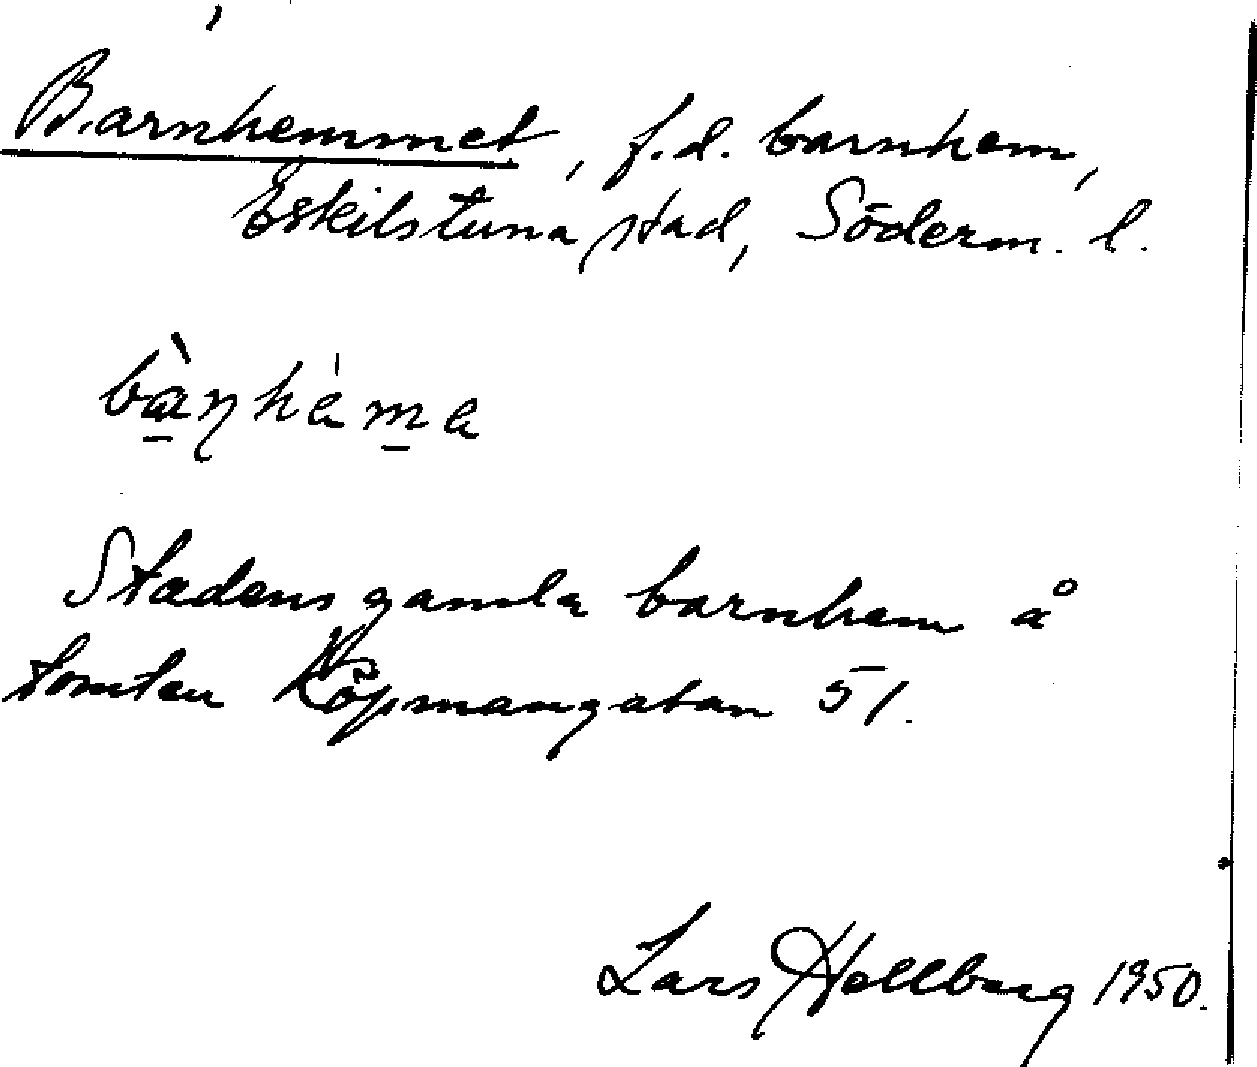 Barnhemmet, f.d. barnhem,
Eskilstuna stad, Söderm. l.
Stadens gamla barnhem å
tomten Köpmangatan 51.
Lars Hellberg 1950.